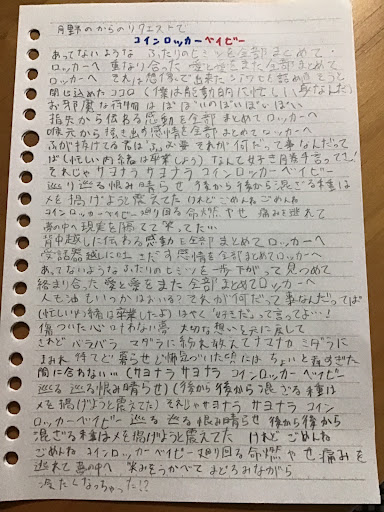 月野のからのリクエストで
コインロッカーベイビー
あってないような ふたりのヒミツを全部まとめて
ロッカーへ 重なり合った愛と愛をまた全部まとめて
ロッカーへ それは想像で出来たシアワセを詰め
閉じ込めたココロ (僕は能動的に忙しい身なんだ)
お邪魔な荷物は ぽぽいのぽいぽいぽい
指先から伝わる感動を全部まとめてロッカーへ
喉元から の感情を全部まとめてロッカーへ
ふたりだけでるふ 必要 それが何だって事なんだって
ば(忙しい内緒は卒業しよう) なんて好き 言って!
それじゃ サヨナラ サヨナラ コインロッカーベイビー
巡り巡る恨み晴らせ 後から後から混ざる種は
メを揚げようと震えてた けれど ごめんね ごめんね
コインロッカーベイビー 廻り回る命燃やせ 痛みを逃れて
夢の中へ現実を隔てて笑ってたい
背中越しに伝わる感動を全部まとめてロッカーへ
受話器越しに す感情を全部まとめてロッカーへ
あってないようなふたりのヒミツを一歩下がって見つめて
絡まり合った愛と愛をまた全部まとめてロッカーへ
人も油もいつかは それが何だって事なんだってば
(忙しい内緒は卒業したよ) はやく「好きだ」って言ってよ…!
傷ついた心 叶わない夢 大切な想いを元に戻して
けれど バラバラ マダラに紛れ放って ナマナカ ミダラに
まみれ 待てど暮らせど 怖気づいた頃には ちょいと過ぎた
間に合わない (サヨナラ サヨナラ コインロッカーベイビー
巡る 巡る恨み晴らせ) (後から後から混ざる種は
メを揚げようと震えてた) それじゃサヨナラ サヨナラ コイン
ロッカーベイビー 巡る 巡る恨み晴らせ 後から後から
混ざる種はメを揚げようと震えてた けれど ごめんね
ごめんね コインロッカーベイビー 廻り回る命燃やせ 痛みを
逃れて 夢の中へ 笑みをうかべて まどろみながら
冷たくなっちゃった!?